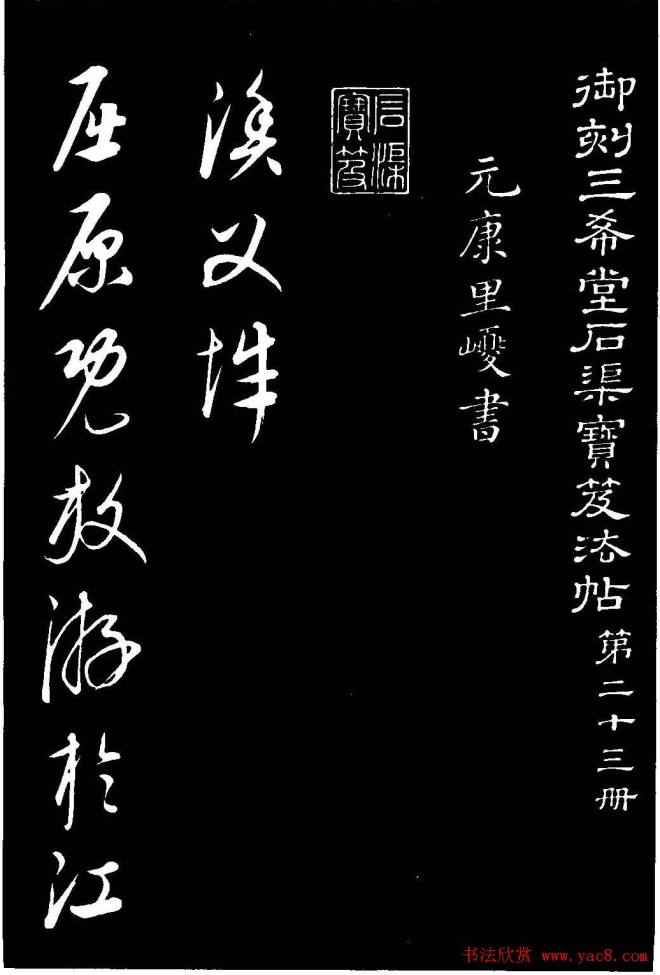 御刻三希堂石渠寶笈法帖 第二十三册
元康里巙書
石渠寶笈
漁父辭
屈原既放游於江
书法欣赏 www.yac8.com